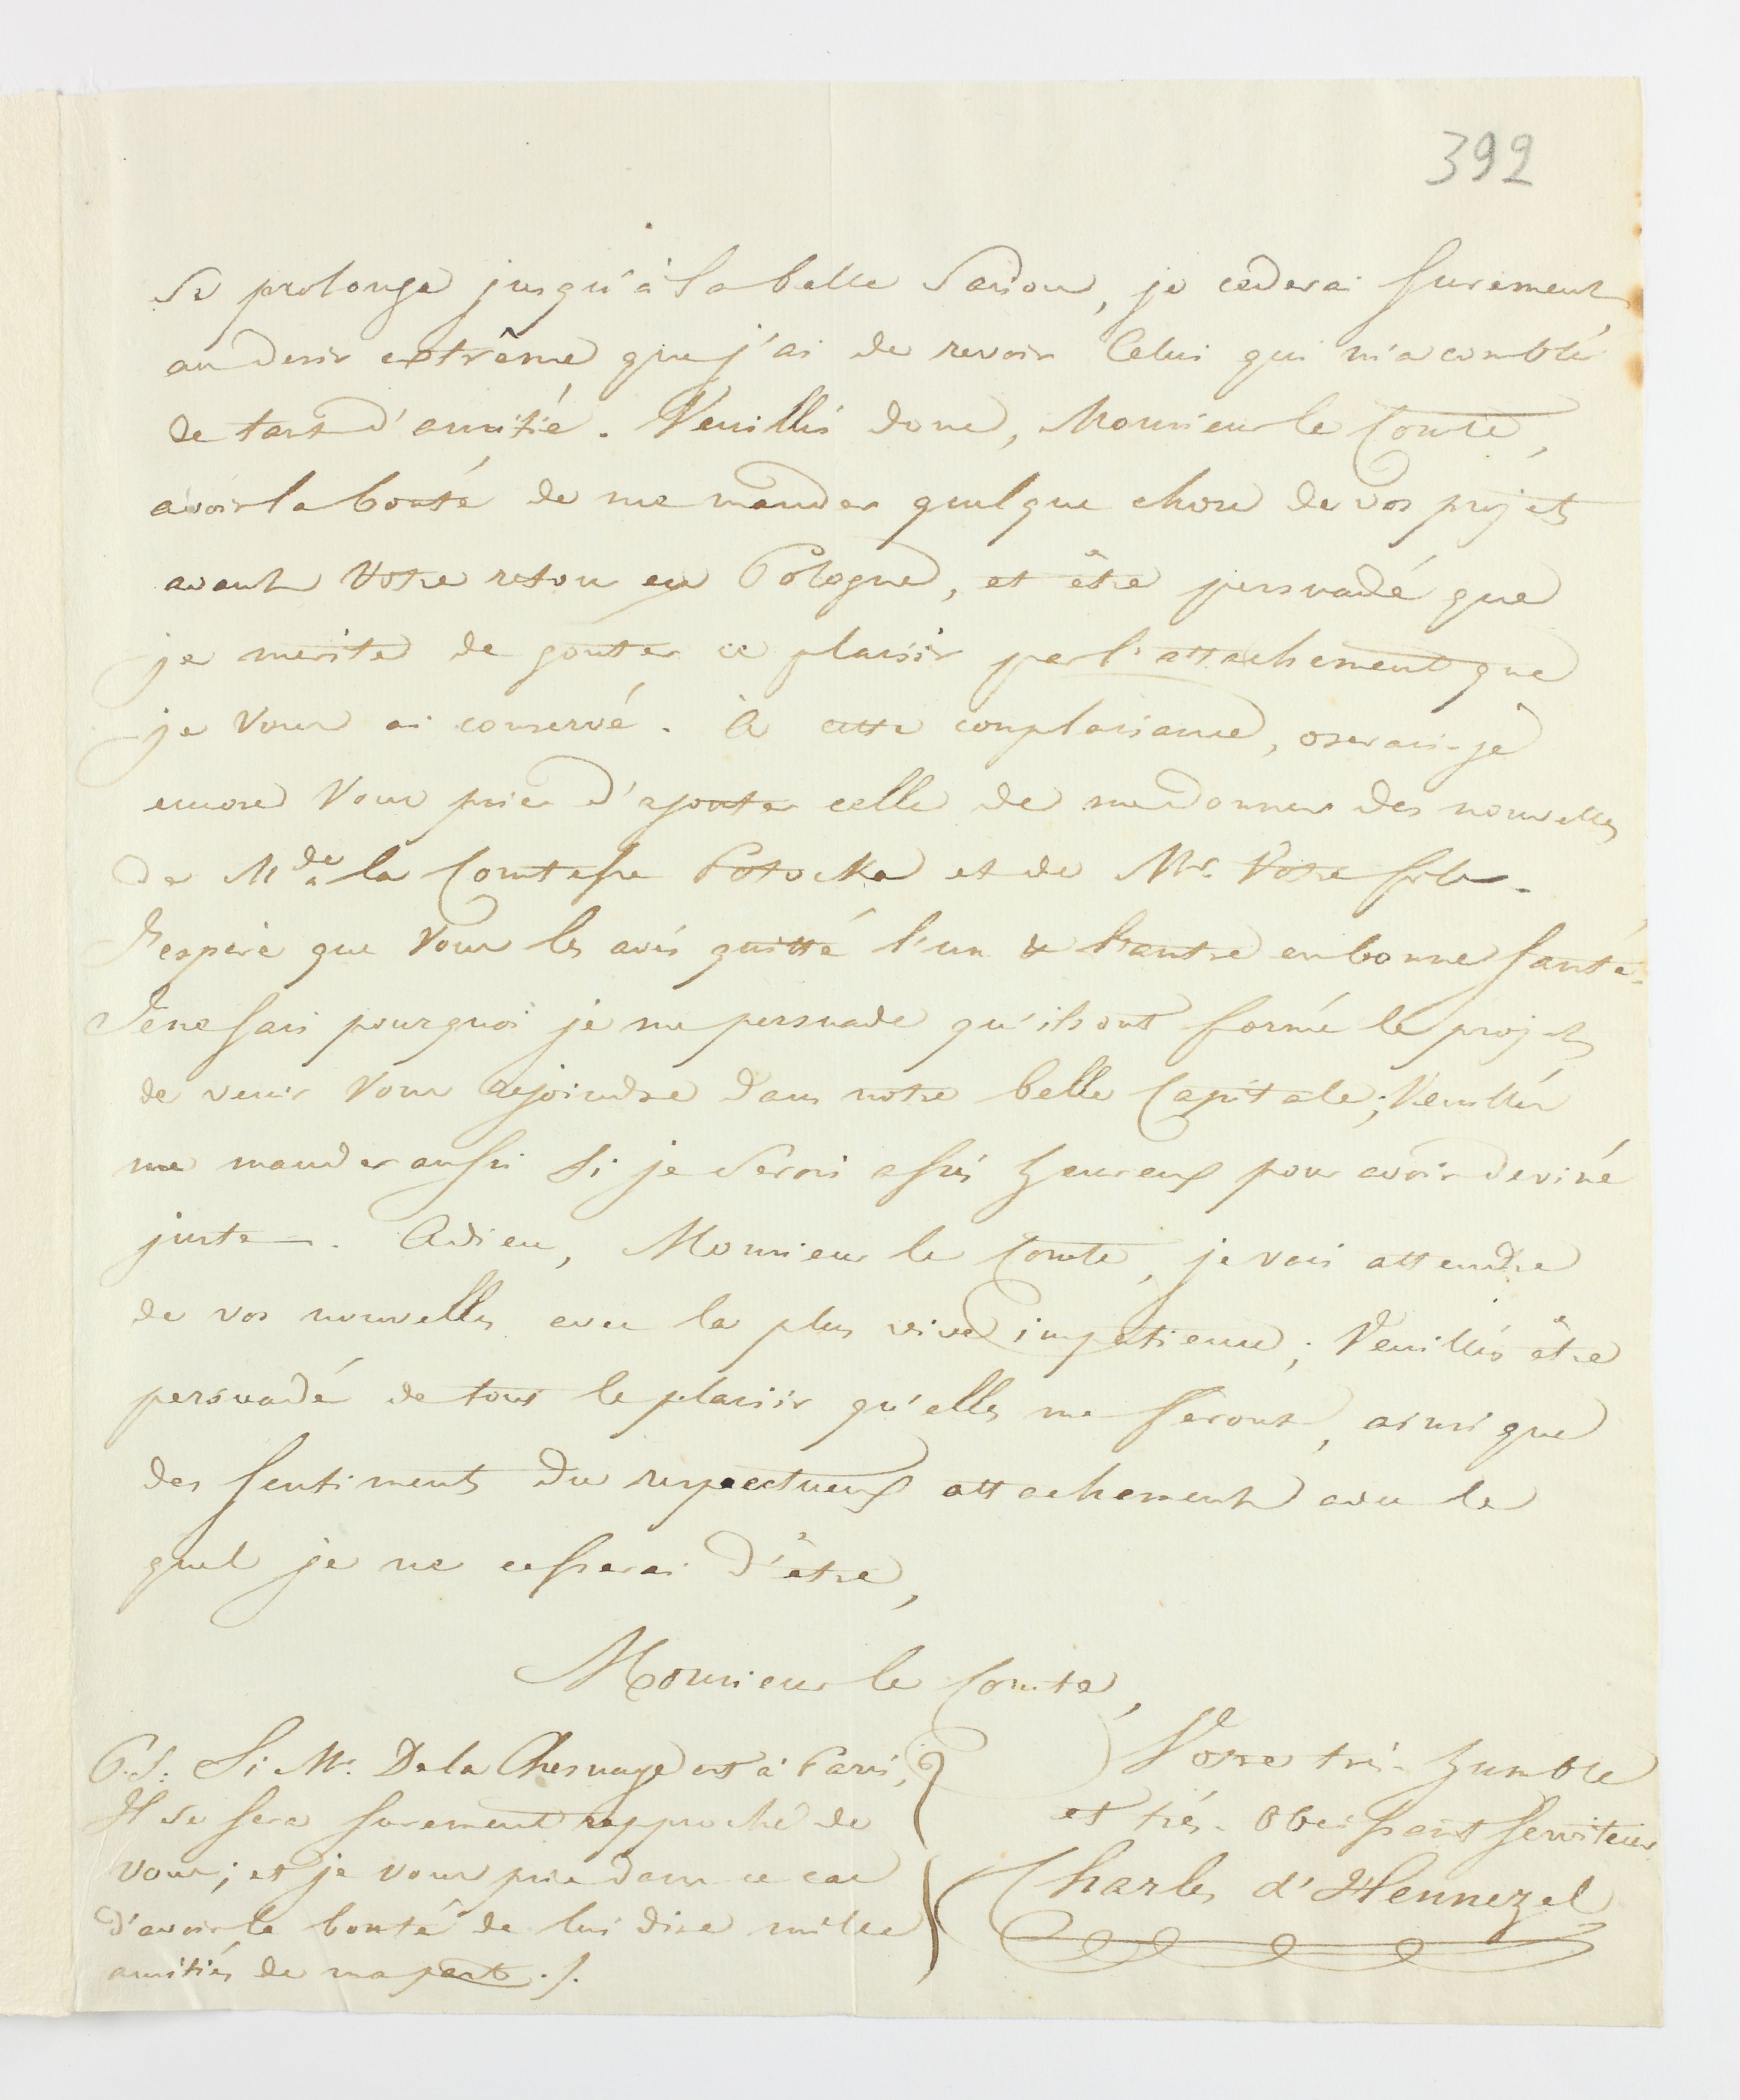 392
se prolonge jusqu'à la belle Saison, je cederai surement
au desir extrême que j'ai de revoir Celui qui m'a comblé
de tant d'amitié. Veuillés donc, Monsieur le Comte,
avoir la bonté de me mander quelque chose de vos projets
avant Votre retour en Pologne, et être persuadé que
je merite de gouter ce plaisir par l'attachement que
je Vous ai conservé. à cette complaisance, oserais-je
encore Vous prier d'ajouter celle de me donner des nouvelles
de Mde la Comtesse Potocka et de Mr. Votre fils.
J'espère que Vous les avés quitté l'un & l'autre en bonne santé.
Je ne sais pourquoi je me persuade qu'ils ont formé le projet
de venir Vous rejoindre dans notre belle Capitale; Veuillés
me mander aussi si je serois assés heureux pour avoir deviné
juste. Adieu, Monsieur le Comte, je vais attendre
de vos nouvelles avec la plus vive impatience; Veuillés être
persuadé de tout le plaisir qu'elles me feront, ainsi que
des sentiments du respectueux attachement avec le
quel je ne cesserai d'être,
Monsieur le Comte,
Votre très-humble
et très-obeissant serviteur
Charles d'Hennezel
P.S. Si Mr. De la Chesnaye est à Paris,
Il se sera surement rapproché de
vous; et je vous prie dans ce cas
d'avoir la bonté de lui dire mille
amitiés de ma part ./.